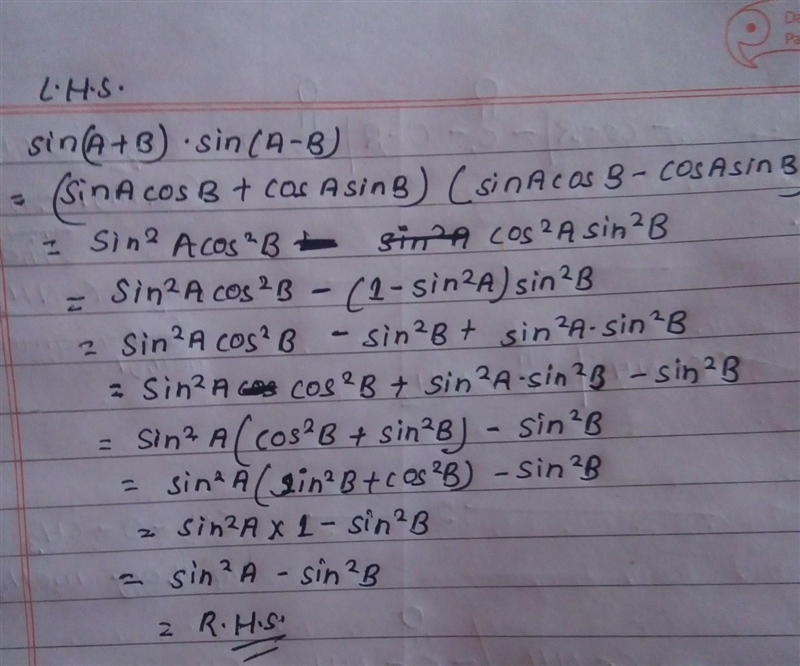 Da
Pa
L.H.S.
sin(A+B) · sin(A-B)
= (sinA cosB + cosA sinB) (sinA cosB - cosA sinB
= Sin² A cos²B - cos²A sin²B
= Sin²A cos²B - (1-sin²A) sin²B
= Sin²A cos²B - sin²B + sin²A · sin²B
= Sin²A cos²B + sin²A · sin²B - sin²B
= Sin² A (cos²B + sin²B) - sin²B
= sin²A (sin²B + cos²B) - sin²B
= sin²A x 1 - sin²B
= sin²A - sin²B
= R.H.S.